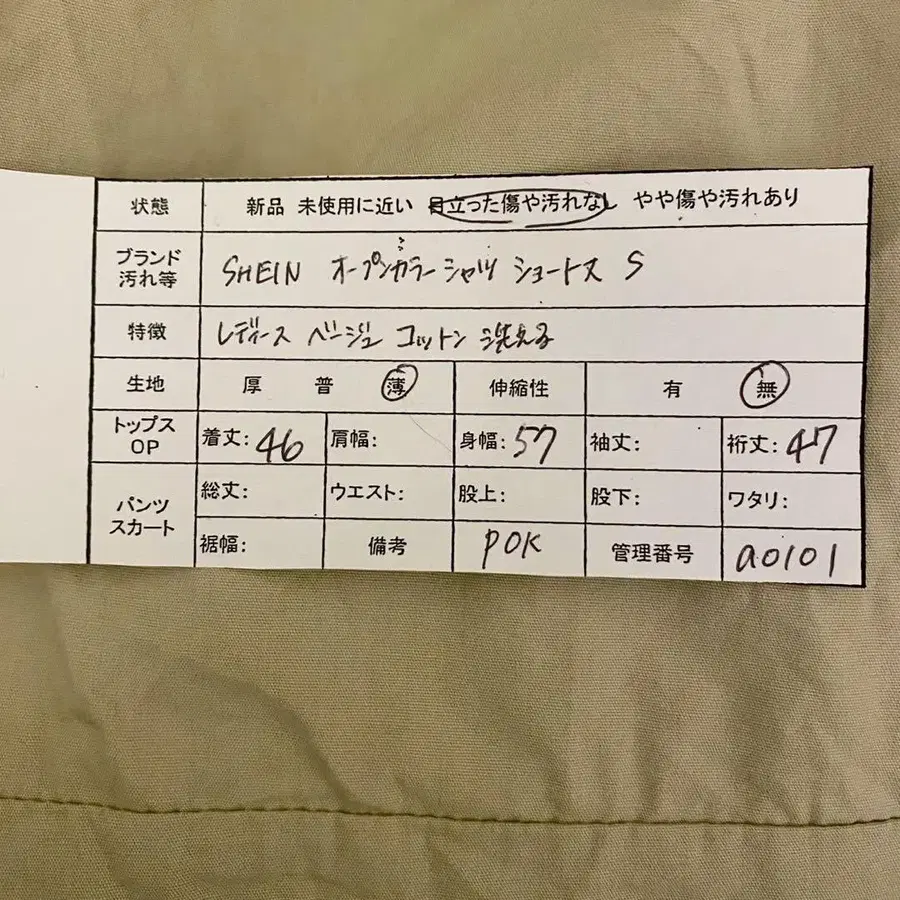 状態 新品 未使用に近い 目立った傷や汚れなし やや傷や汚れあり
ブランド 汚れ等 SHEIN オープンカラーシャツ ショート丈 S
特徴 レディース ベージュ コットン 洗える
生地 厚 普 薄 伸縮性 有 無
トップス OP 着丈: 46 肩幅: 身幅: 57 袖丈: 裄丈: 47
パンツ スカート 総丈: ウエスト: 股上: 股下: ワタリ:
裾幅: 備考 POK 管理番号 a0101